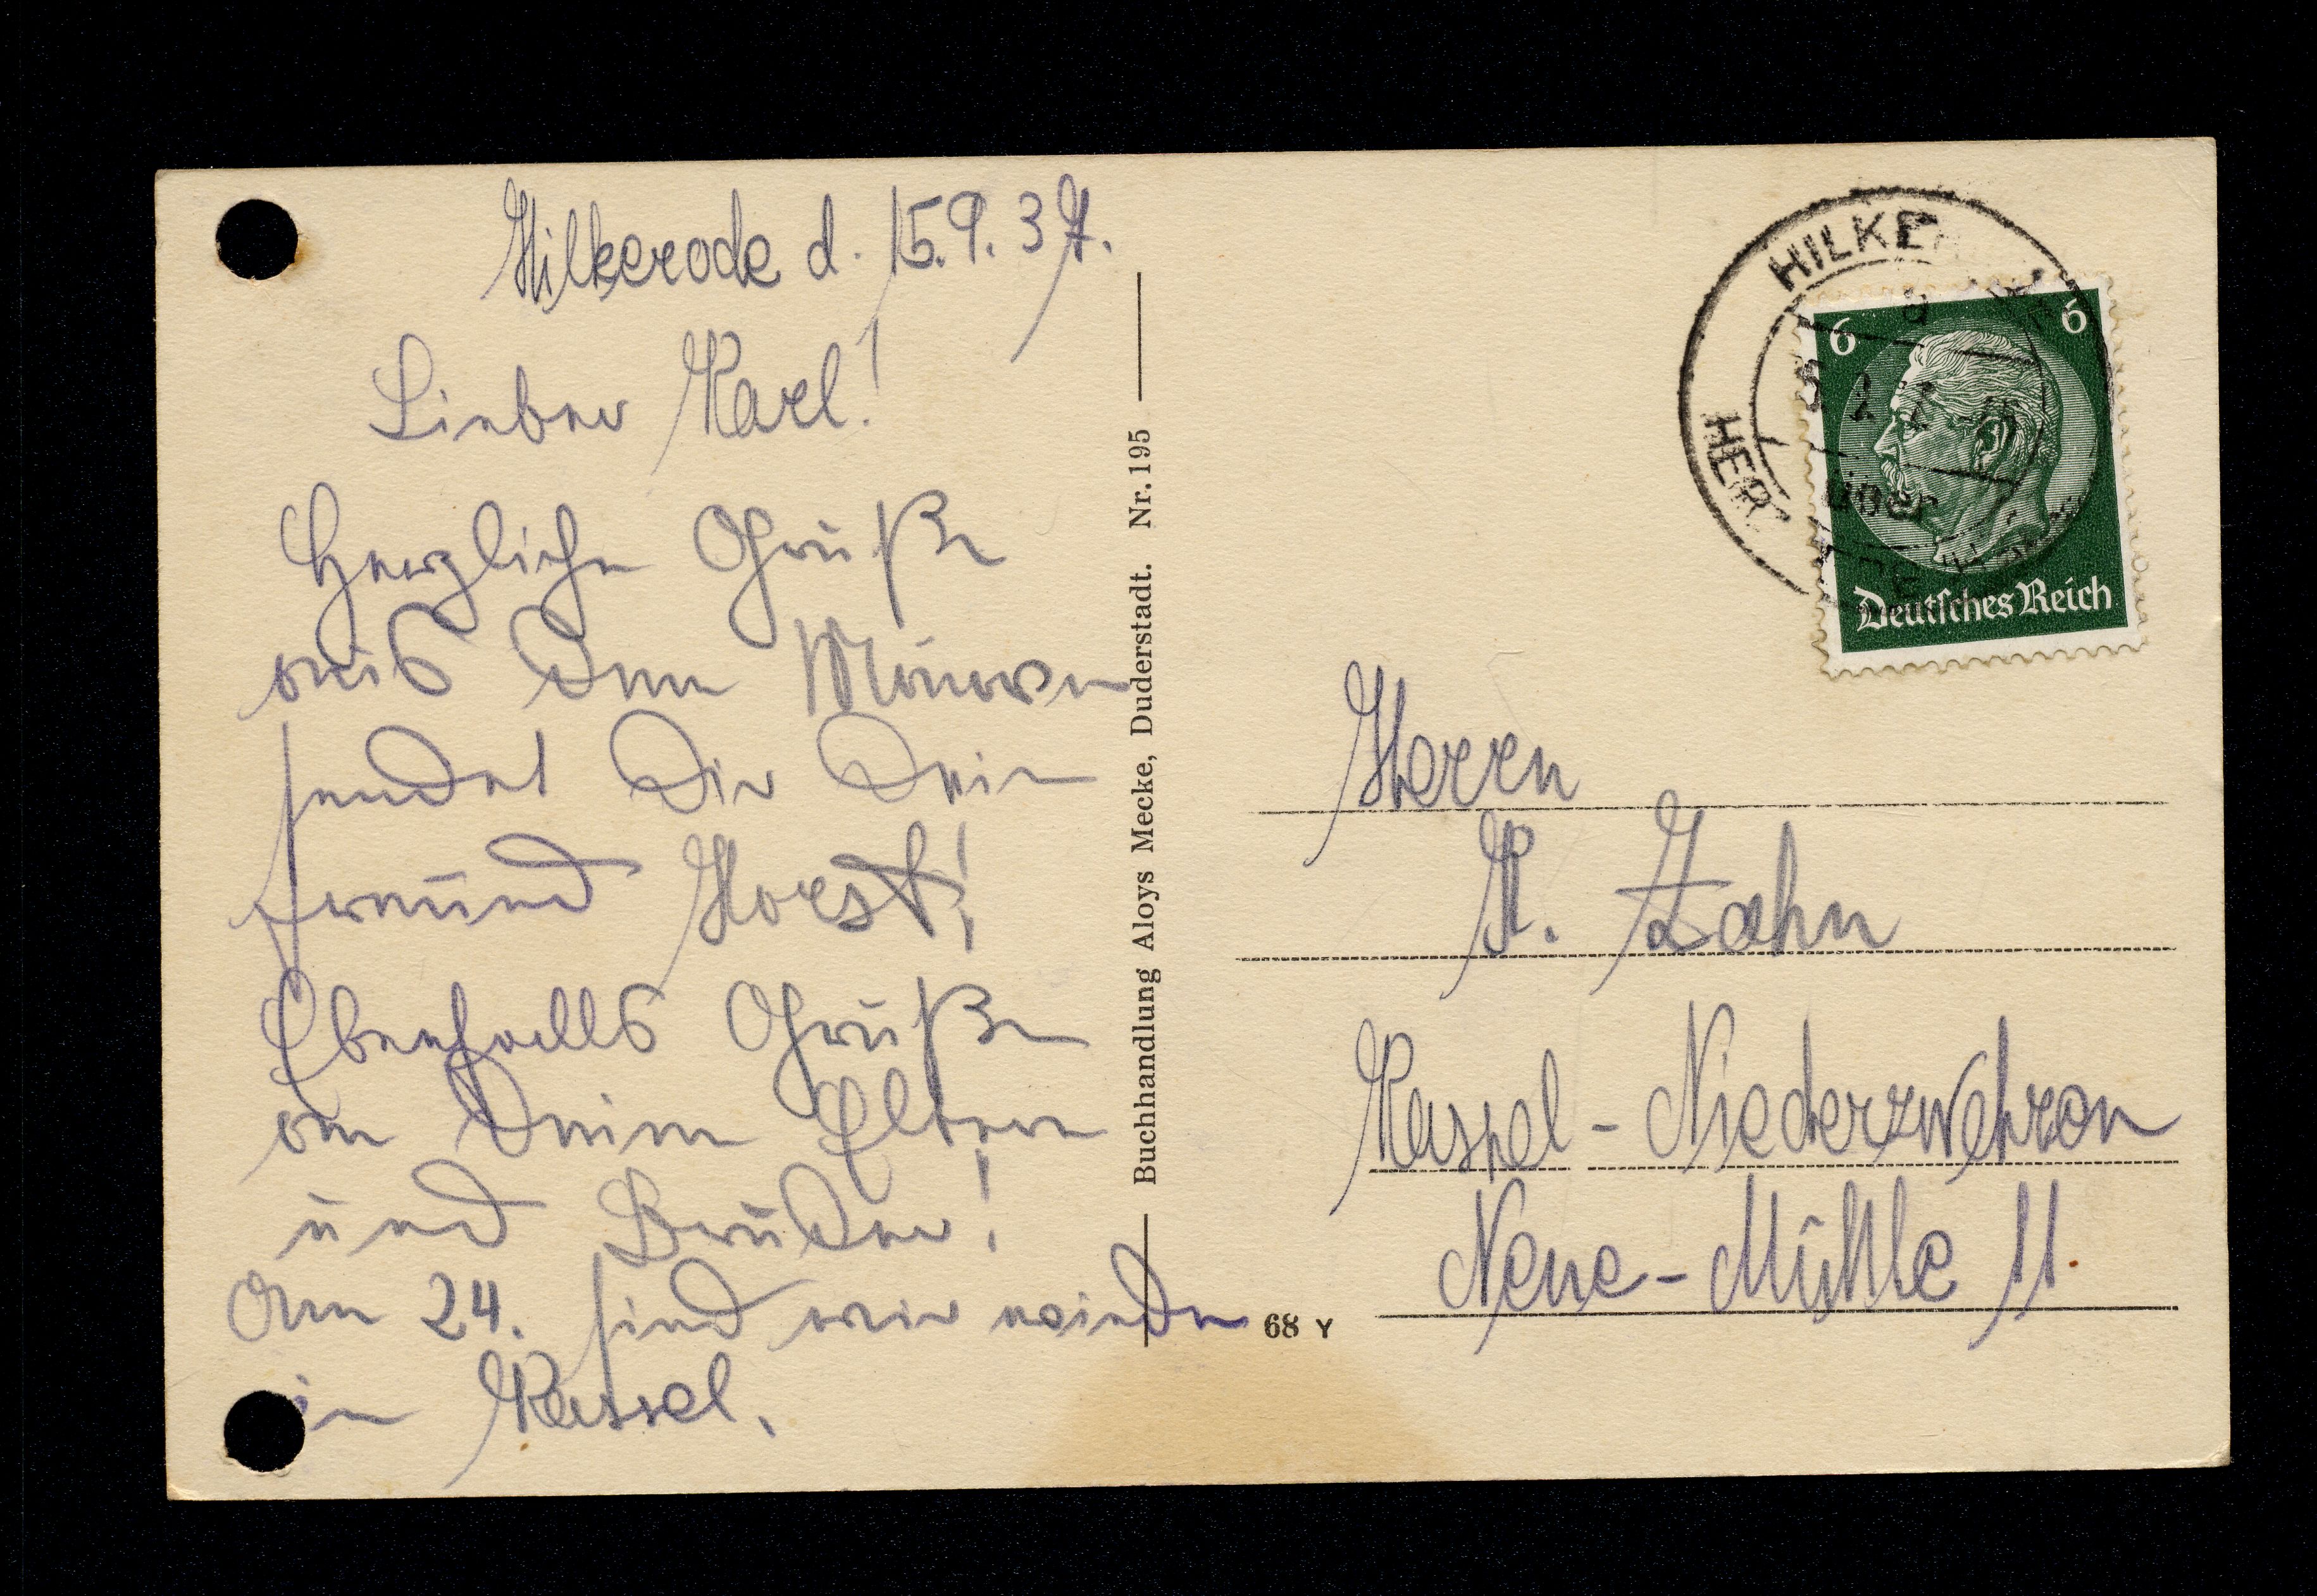 Hilkerode d. 15.9.37.
Lieber Karl!
Herzliche Grüße
aus dem
sendet Dir Dein
Freund Horst!
Ebenfalls Grüße
an Deine Eltern
und Bruder!
Am 24. sind wir wieder
in Kassel.
Buchhandlung Aloys Mecke, Duderstadt. Nr. 195
68 Y
HILKE
über
HER
6 6
Deutsches Reich
Herrn
K. Zahn
Kassel-Niederzwehren
Neue-Mühle 11.